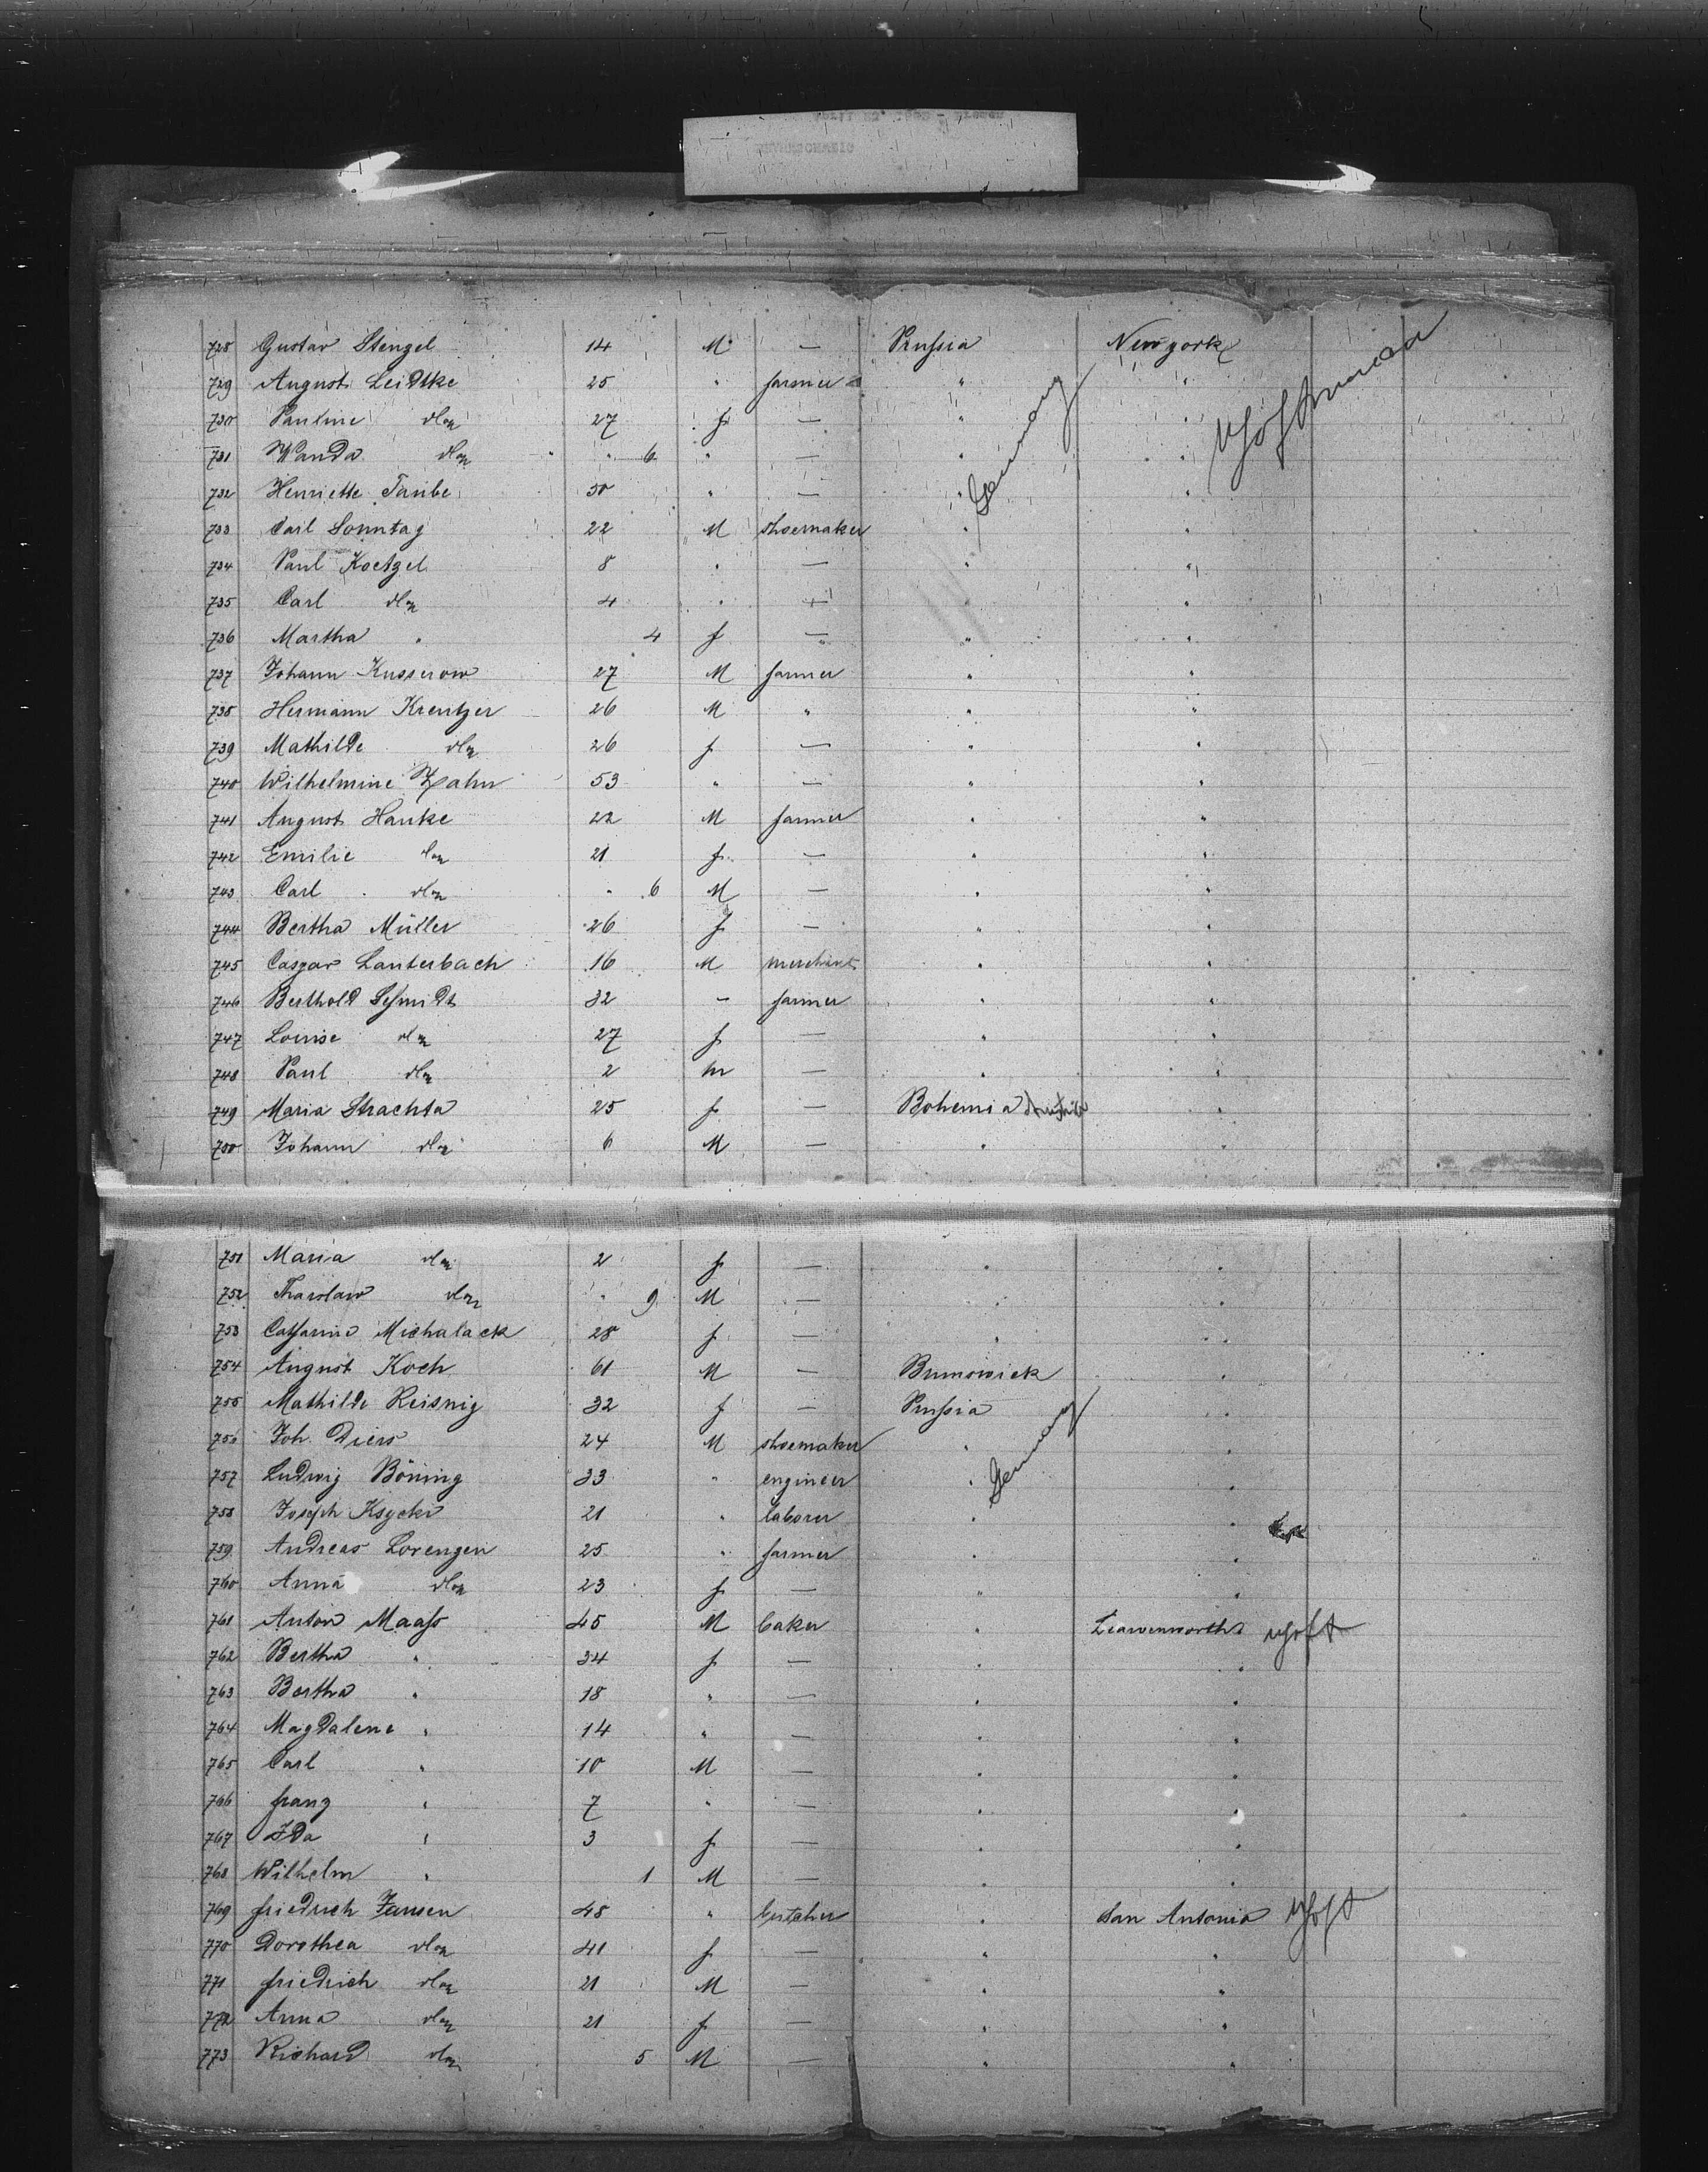 BRAUNSCHWEIG
728 Gustav Stengel 14 M — Prussia Newyork
729 August Leidtke 25 " farmer " "
730 Pauline do 27 f — " " Germany
731 Wanda do " 6 " — " "
732 Henriette Taube 30 " — " "
733 Carl Sonntag 22 M shoemaker " "
734 Paul Koetzel 8 " — " "
735 Carl do 4 " — " "
736 Martha " 4 f — " "
737 Johann Kusserow 27 M farmer " "
738 Hermann Kreutzer 26 M " " "
739 Mathilde do 26 f — " "
740 Wilhelmine Zahn 53 " — " "
741 August Hanke 22 M farmer " "
742 Emilie do 21 f — " "
743 Carl do " 6 M — " "
744 Bertha Müller 26 f — " "
745 Caspar Lauterbach 16 M merchant " "
746 Berthold Schmidt 32 — farmer " "
747 Louise do 27 f — " "
748 Paul do 2 m — " "
749 Maria Strachta 25 f — Bohemia Austria "
750 Johann do 6 M — " "
751 Maria do 2 f — " "
752 do " 9 M — " "
753 Catharine Michalack 28 f — " "
754 August Koch 61 M — Brunswick "
755 Mathilde Reisnig 32 f — Prussia "
756 Joh. Diers 24 M shoemaker " "
757 Ludwig Böning 33 " engineer " Germany "
758 Joseph Ksycki 21 " laborer " "
759 Andreas Lorenzen 25 " farmer " "
760 Anna do 23 f — " "
761 Anton Maass 45 M baker " Leavenworth
762 Bertha " 34 f — " "
763 Bertha " 18 " — " "
764 Magdalene " 14 " — " "
765 Carl " 10 M — " "
766 franz " 7 " — " "
767 Ida " 3 f — " "
768 Wilhelm " 1 M — " "
769 friedrich Jansen 48 " " San Antonio
770 Dorothea do 41 f — " "
771 friedrich do 21 M — " "
772 Anna do 21 f — " "
773 Richard do 5 M — " "